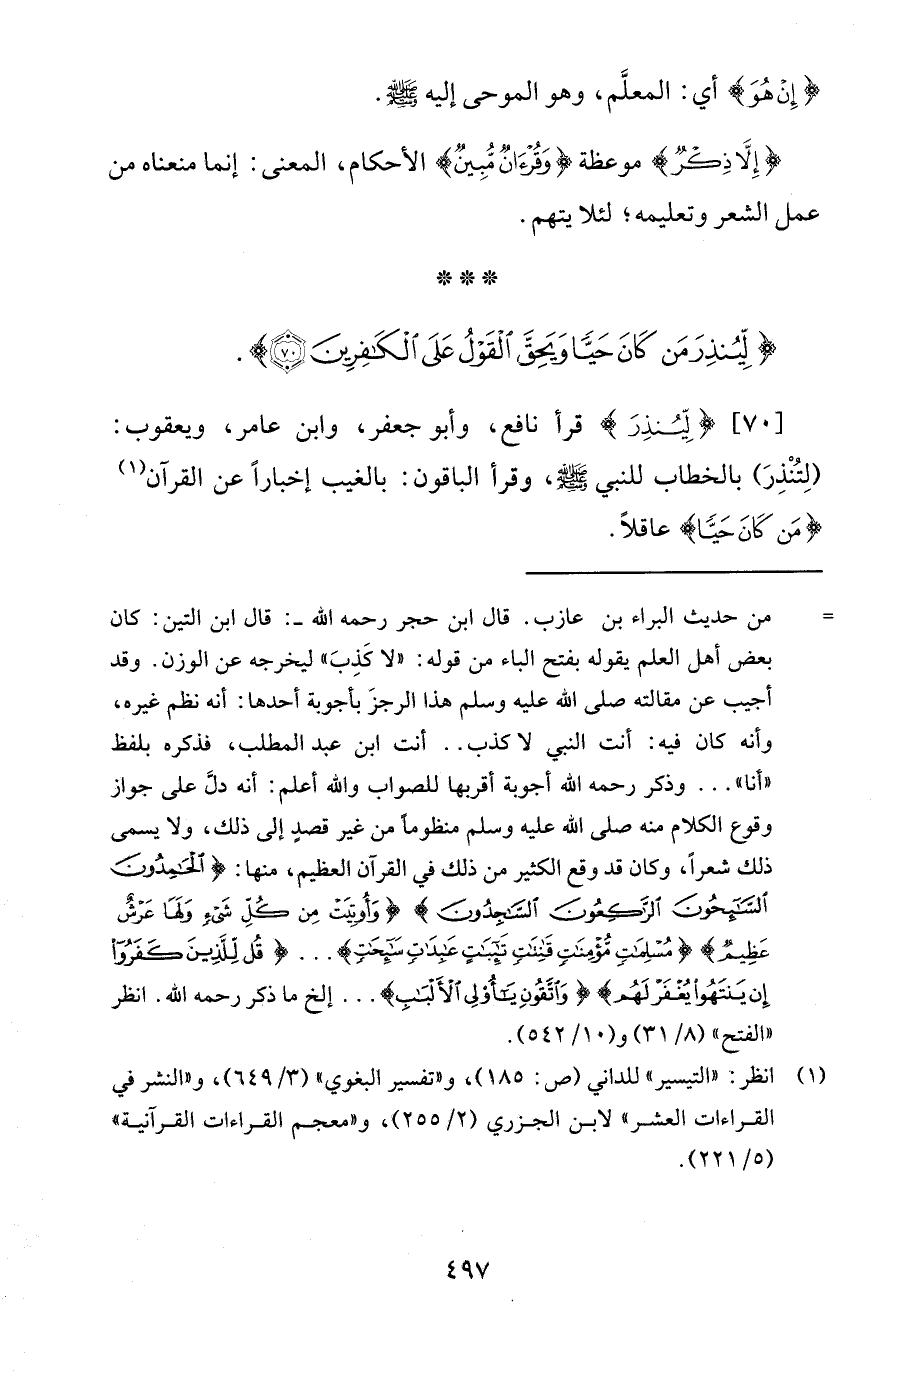 ﴿إِنْ هُوَ﴾ أي: المعلَّم، وهو الموحى إليه ﷺ.
﴿إِلَّا ذِكْرٌ﴾ موعظة ﴿وَقُرْءَانٌ مُّبِينٌ﴾ الأحكام، المعنى: إنما منعناه من
عمل الشعر وتعليمه؛ لئلا يتهم.
***
﴿لِّيُنذِرَ مَن كَانَ حَيًّا وَيَحِقَّ ٱلْقَوْلُ عَلَى ٱلْكَـٰفِرِينَ ﴿٧٠﴾﴾.
[٧٠] ﴿لِّيُنذِرَ﴾ قرأ نافع، وأبو جعفر، وابن عامر، ويعقوب:
(لِتُنْذِرَ) بالخطاب للنبي ﷺ، وقرأ الباقون: بالغيب إخباراً عن القرآن(١)
﴿مَن كَانَ حَيًّا﴾ عاقلاً.
= من حديث البراء بن عازب. قال ابن حجر رحمه الله ـ: قال ابن التين: كان
بعض أهل العلم يقوله بفتح الباء من قوله: «لا كَذِبَ» ليخرجه عن الوزن. وقد
أجيب عن مقالته صلى الله عليه وسلم هذا الرجزَ بأجوبة أحدها: أنه نظم غيره،
وأنه كان فيه: أنت النبي لا كذب.. أنت ابن عبد المطلب، فذكره بلفظ
«أنا»... وذكر رحمه الله أجوبة أقربها للصواب والله أعلم: أنه دلَّ على جواز
وقوع الكلام منه صلى الله عليه وسلم منظوماً من غير قصدٍ إلى ذلك، ولا يسمى
ذلك شعراً، وكان قد وقع الكثير من ذلك في القرآن العظيم، منها: ﴿ٱلْحَـٰمِدُونَ
ٱلسَّـٰٓئِحُونَ ٱلرَّٰكِعُونَ ٱلسَّـٰجِدُونَ﴾ ﴿وَأُوتِيَتْ مِن كُلِّ شَىْءٍ وَلَهَا عَرْشٌ
عَظِيمٌ﴾ ﴿مُسْلِمَـٰتٍ مُّؤْمِنَـٰتٍ قَـٰنِتَـٰتٍ تَـٰٓئِبَـٰتٍ عَـٰبِدَٰتٍ سَـٰٓئِحَـٰتٍ﴾... ﴿قُل لِّلَّذِينَ كَفَرُوٓا۟
إِن يَنتَهُوا۟ يُغْفَرْ لَهُم﴾ ﴿وَٱتَّقُونِ يَـٰٓأُو۟لِى ٱلْأَلْبَـٰبِ﴾... إلخ ما ذكر رحمه الله. انظر
«الفتح» (٨/ ٣١) و(١٠/ ٥٤٢).
(١) انظر: «التيسير» للداني (ص: ١٨٥)، و«تفسير البغوي» (٣/ ٦٤٩)، و«النشر في
القراءات العشر» لابن الجزري (٢/ ٢٥٥)، و«معجم القراءات القرآنية»
(٥/ ٢٢١).
٤٩٧